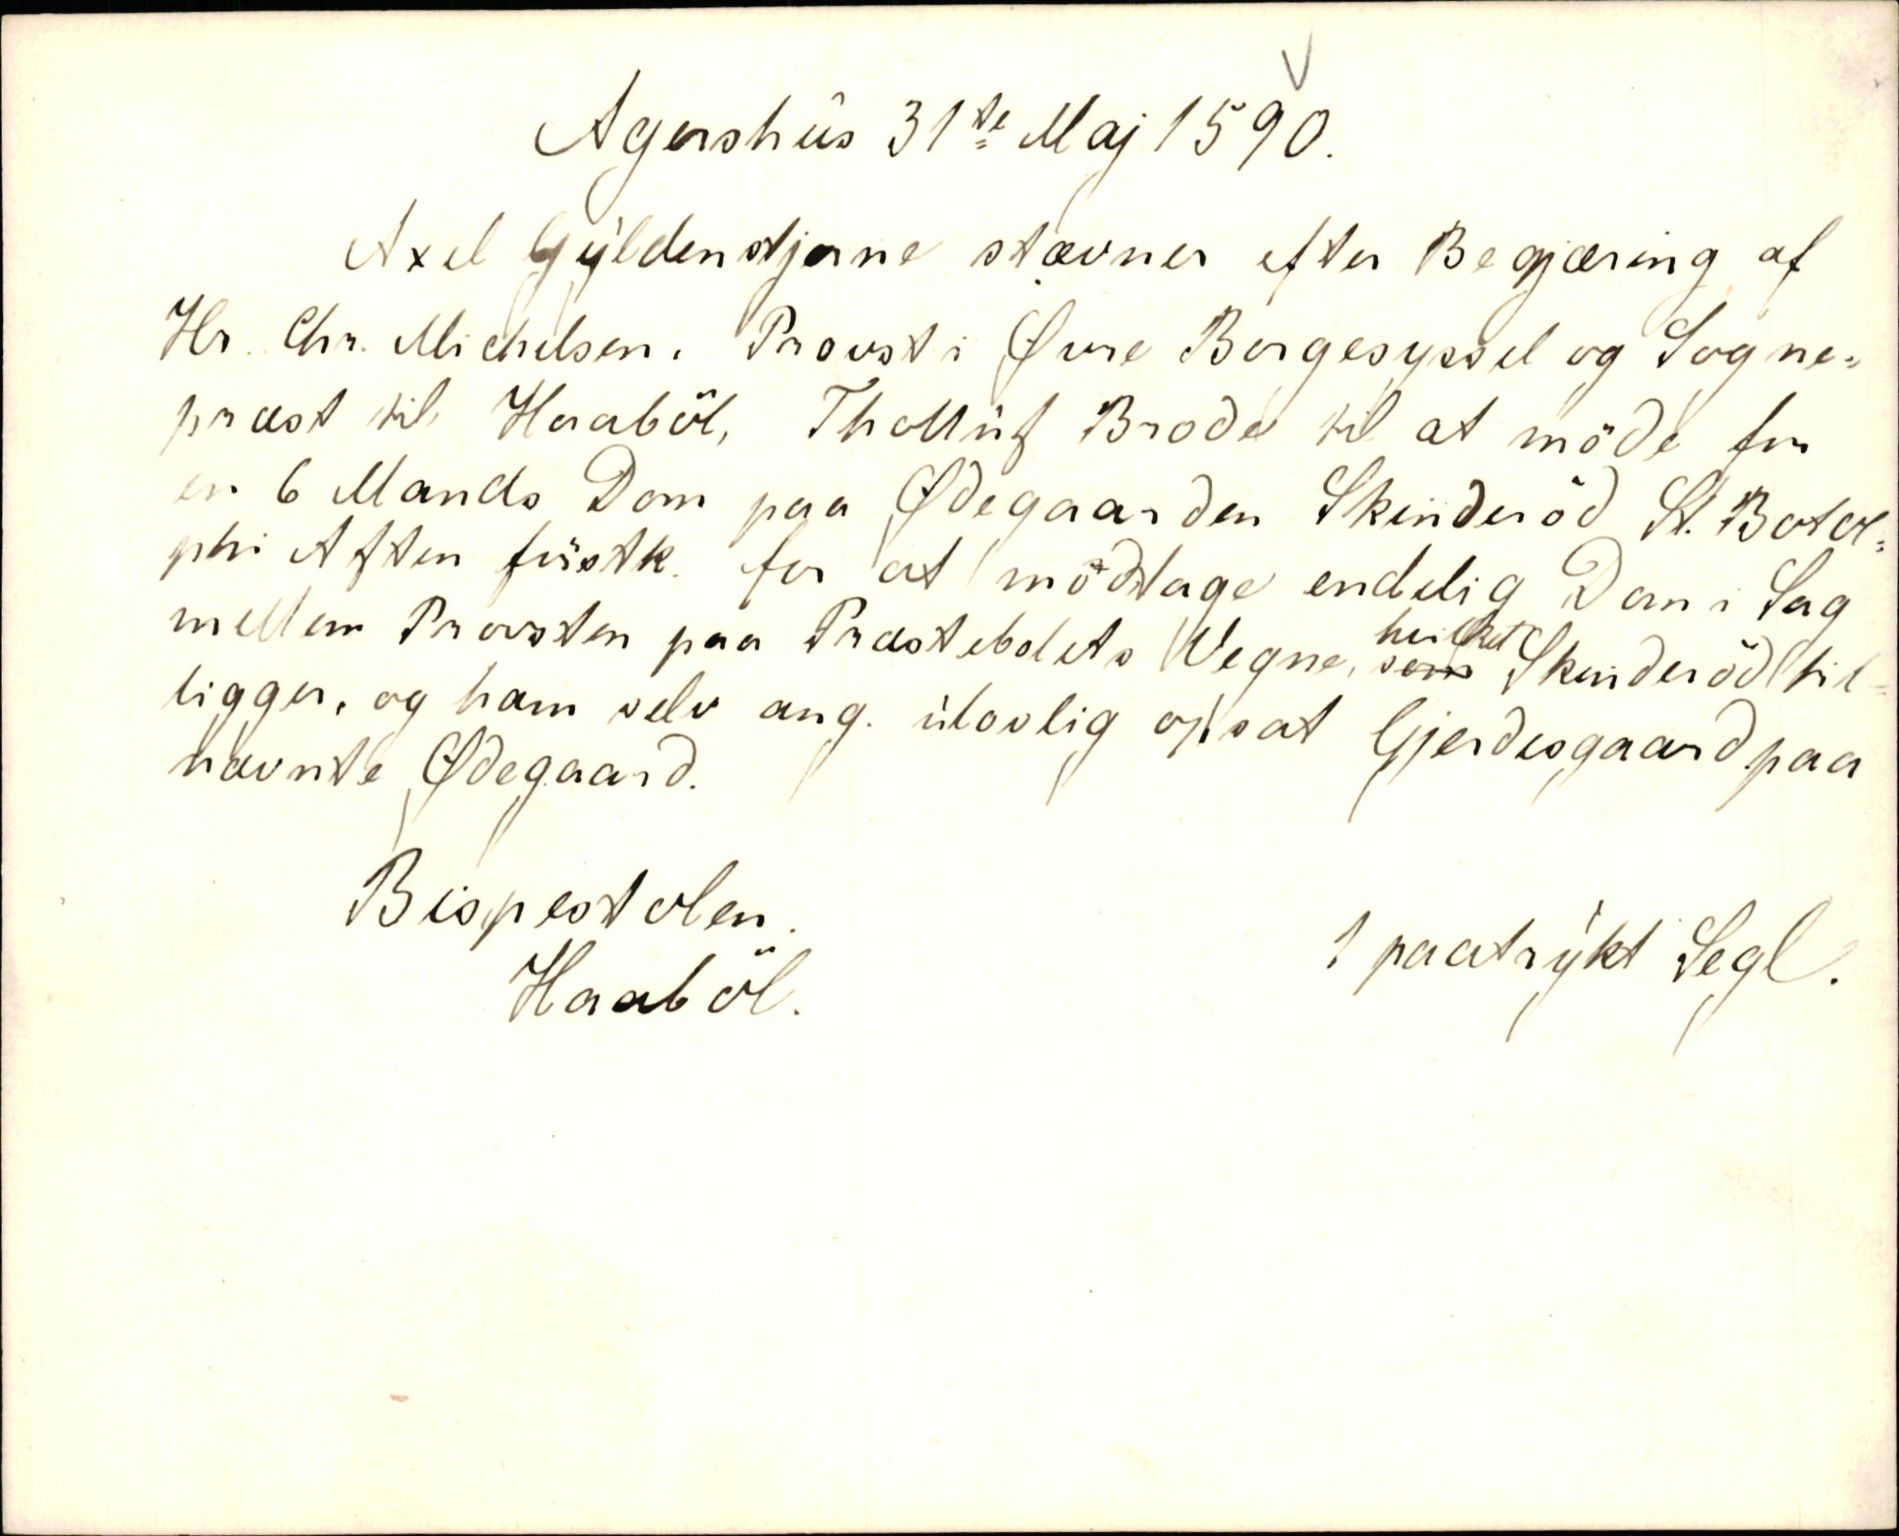 Agershus 31te Maj 1590.
Axel Gyldenstjerne stævner efter Begjæring af
Hr. Chr. Michelsen, Provst i Øvre Borgesyssel og Sogne-
præst til Haaböl, Thollüf Brode til at möde for
en 6 Mands Dom paa Ødegaarden Skinderöd St. Botol-
phi Aften förstk. for at modtage endelig Dom i Sag
mellem Provsten paa Præstebolets Vegne, hvilket Skinderöd til-
ligger, og ham selv ang. ulovlig opsat Gjerdesgaard paa
nævnte Ødegaard.
Bispestolen.
Haaböl.
1 paatrykt Segl.